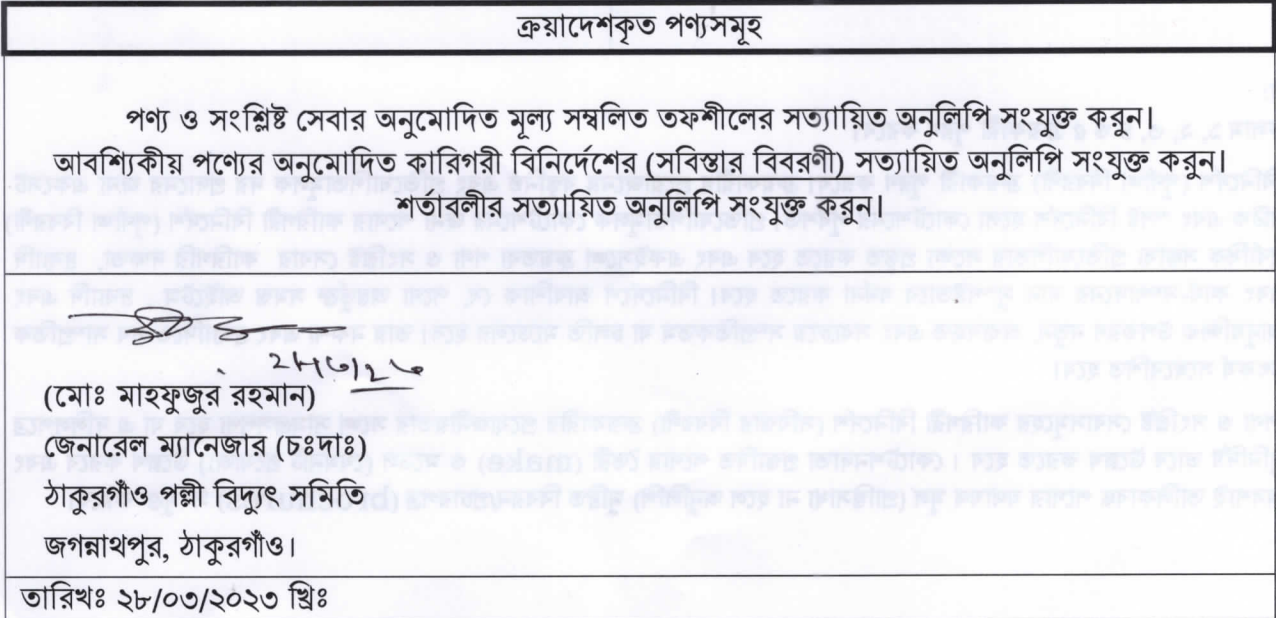 ক্রয়াদেশকৃত পণ্যসমূহ
পণ্য ও সংশ্লিষ্ট সেবার অনুমোদিত মূল্য সম্বলিত তফশীলের সত্যায়িত অনুলিপি সংযুক্ত করুন।
আবশ্যিকীয় পণ্যের অনুমোদিত কারিগরী বিনির্দেশের (সবিস্তার বিববরণী) সত্যায়িত অনুলিপি সংযুক্ত করুন।
শর্তাবলীর সত্যায়িত অনুলিপি সংযুক্ত করুন।
২৮/৩/২৩
(মোঃ মাহফুজুর রহমান)
জেনারেল ম্যানেজার (চঃদাঃ)
ঠাকুরগাঁও পল্লী বিদ্যুৎ সমিতি
জগন্নাথপুর, ঠাকুরগাঁও।
তারিখঃ ২৮/০৩/২০২৩ খ্রিঃ